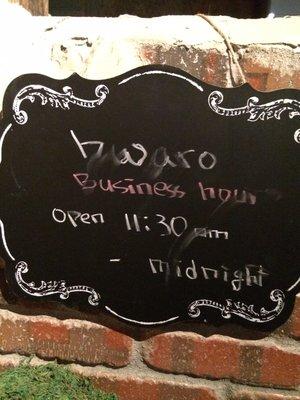 hwaro
Business hour
open 11:30 am
- midnight